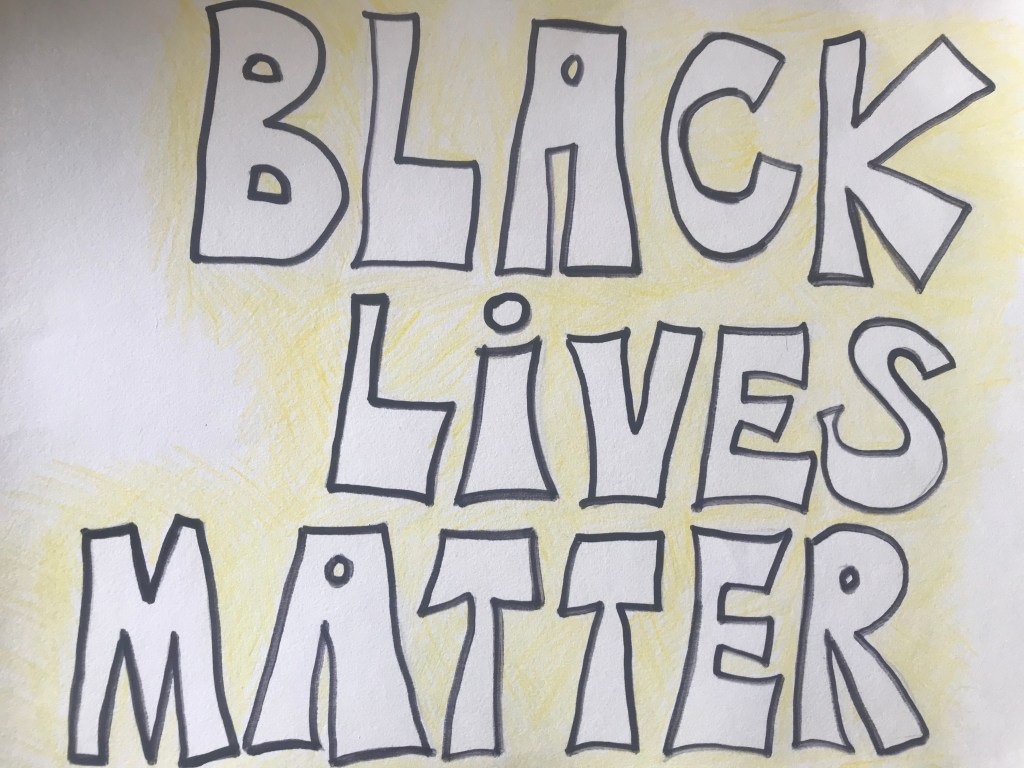 BLACK
LiVES
MATTER